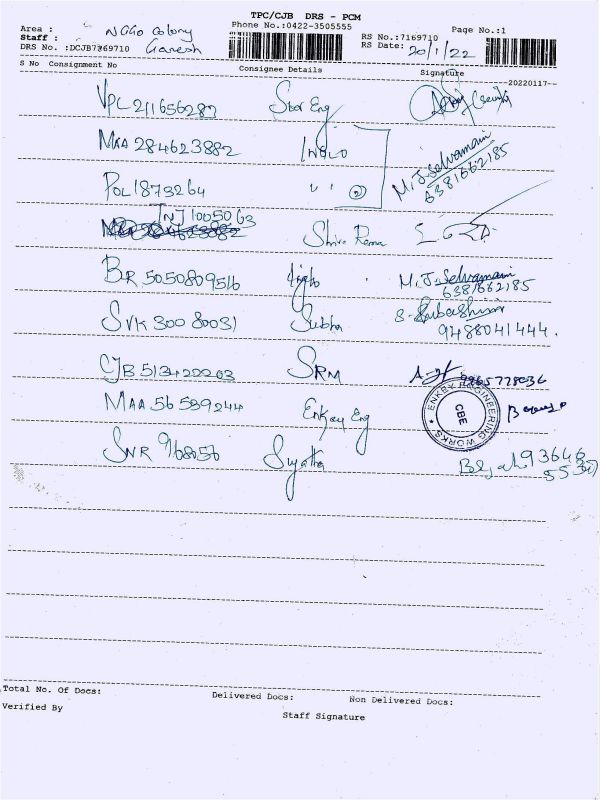 TPC/CJB DRS - PCM
Phone No.:0422-3505555
Area : NGGO Colony
Staff : Ganesh
DRS No. :DCJB7169710
RS No.:7169710
RS Date: 20/1/22
Page No.:1
S No Consignment No Consignee Details Signature
--20220117--
VPL 211656287 Star Eng
MAA 284623882 M.J.Selvamani
6381662185
POL 1873264 " " (2)
TNJ 1005063 Shiva Rama
BR 5050809516 M.J.Selvamani
6381662185
SVK 30080031 Subha S. Subashini
9488041444.
CJB 513422203 SRM
MAA 56589244 Enkay Eng ENKEY ENGINEERING WORKS CBE
SNR 968056 Sujatha 93646
Total No. Of Docs: Delivered Docs: Non Delivered Docs:
Verified By Staff Signature